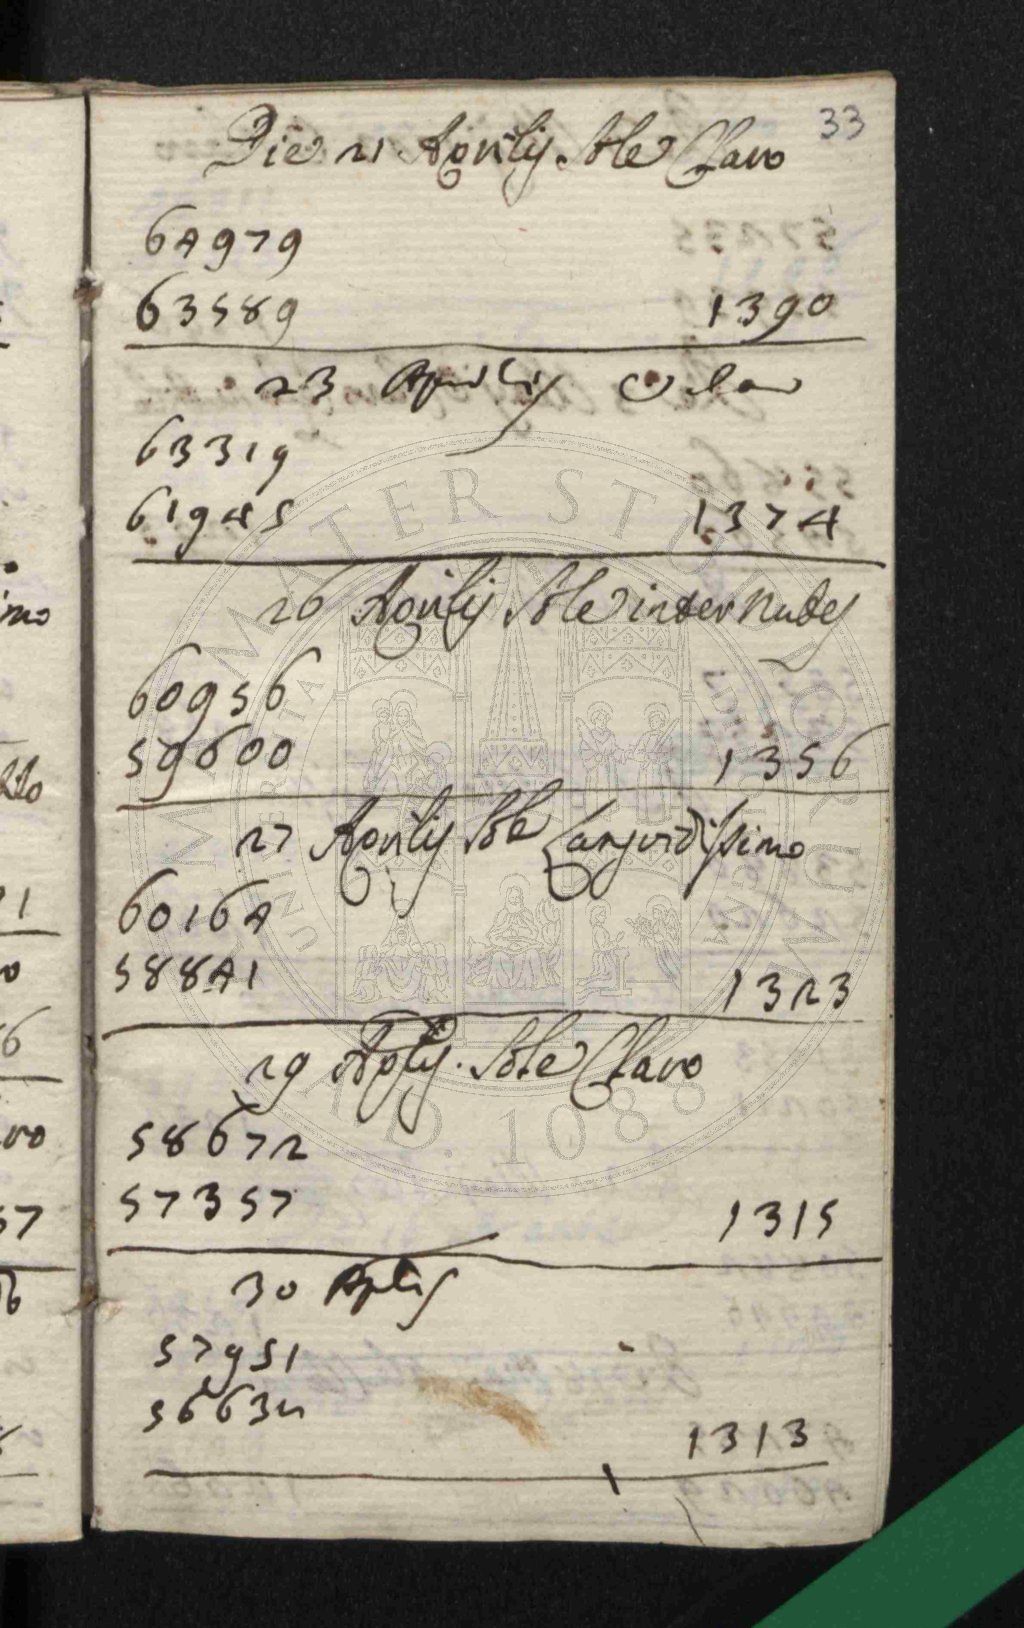 33
Die 21 Aprilis Sole Claro
64979
63589 1390
23 Aprilis ☉ claro
63319
61945 1374
26 Aprilis Sole inter nubes
60956
59600 1356
27 Aprilis Sole Languidissimo
60164
58841 1323
29 Aplis. Sole Claro
58672
57357 1315
30 Aplis
57951
56638 1313
ALMA MATER STUDIORUM
A.D. 1088